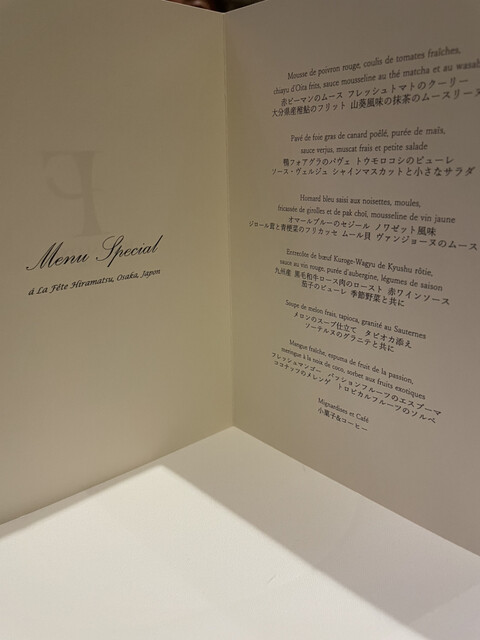 F
Menu Special
à La Fête Hiramatsu, Osaka, Japon
Mousse de poivron rouge, coulis de tomates fraîches,
chiayu d'Oita frits, sauce mousseline au thé matcha et au wasabi
赤ピーマンのムース フレッシュトマトのクーリー
大分県産稚鮎のフリット 山葵風味の抹茶のムースリーヌ
Pavé de foie gras de canard poêlé, purée de maïs,
sauce verjus, muscat frais et petite salade
鴨フォアグラのパヴェ トウモロコシのピューレ
ソース・ヴェルジュ シャインマスカットと小さなサラダ
Homard bleu saisi aux noisettes, moules,
fricassée de girolles et de pak choï, mousseline de vin jaune
オマールブルーのセジール ノワゼット風味
ジロール茸と青梗菜のフリカッセ ムール貝 ヴァンジョーヌのムース
Entrecôte de bœuf Kuroge-Wagyu de Kyushu rôtie,
sauce au vin rouge, purée d'aubergine, légumes de saison
九州産 黒毛和牛ロース肉のロースト 赤ワインソース
茄子のピューレ 季節野菜と共に
Soupe de melon frais, tapioca, granité au Sauternes
メロンのスープ仕立て タピオカ添え
ソーテルヌのグラニテと共に
Mangue fraîche, espuma de fruit de la passion,
meringue à la noix de coco, sorbet aux fruits exotiques
フレッシュマンゴー パッションフルーツのエスプーマ
ココナッツのメレンゲ トロピカルフルーツのソルベ
Mignardises et Café
小菓子&コーヒー